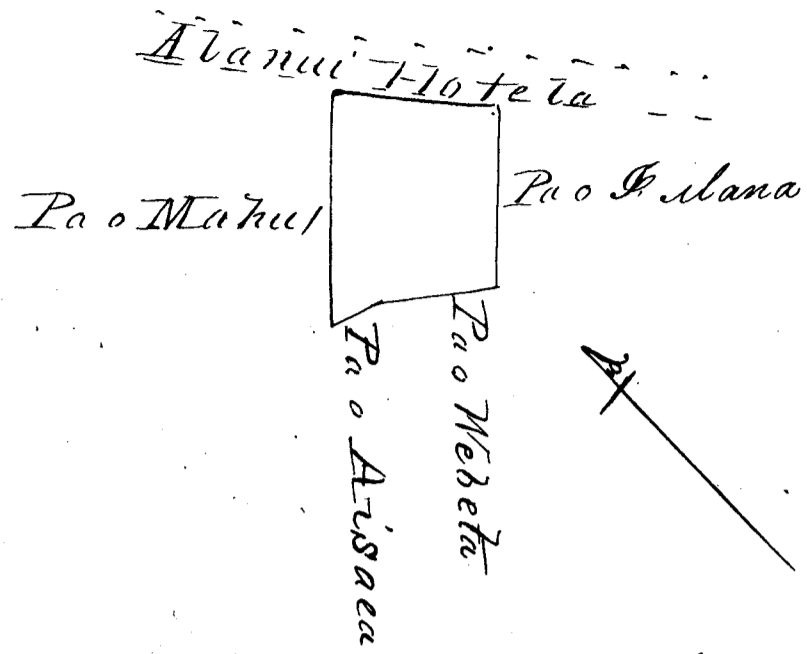 Alanui Hotela
Pa o Mahui
Pa o
Pa o Aisaea
Pa o Weheta